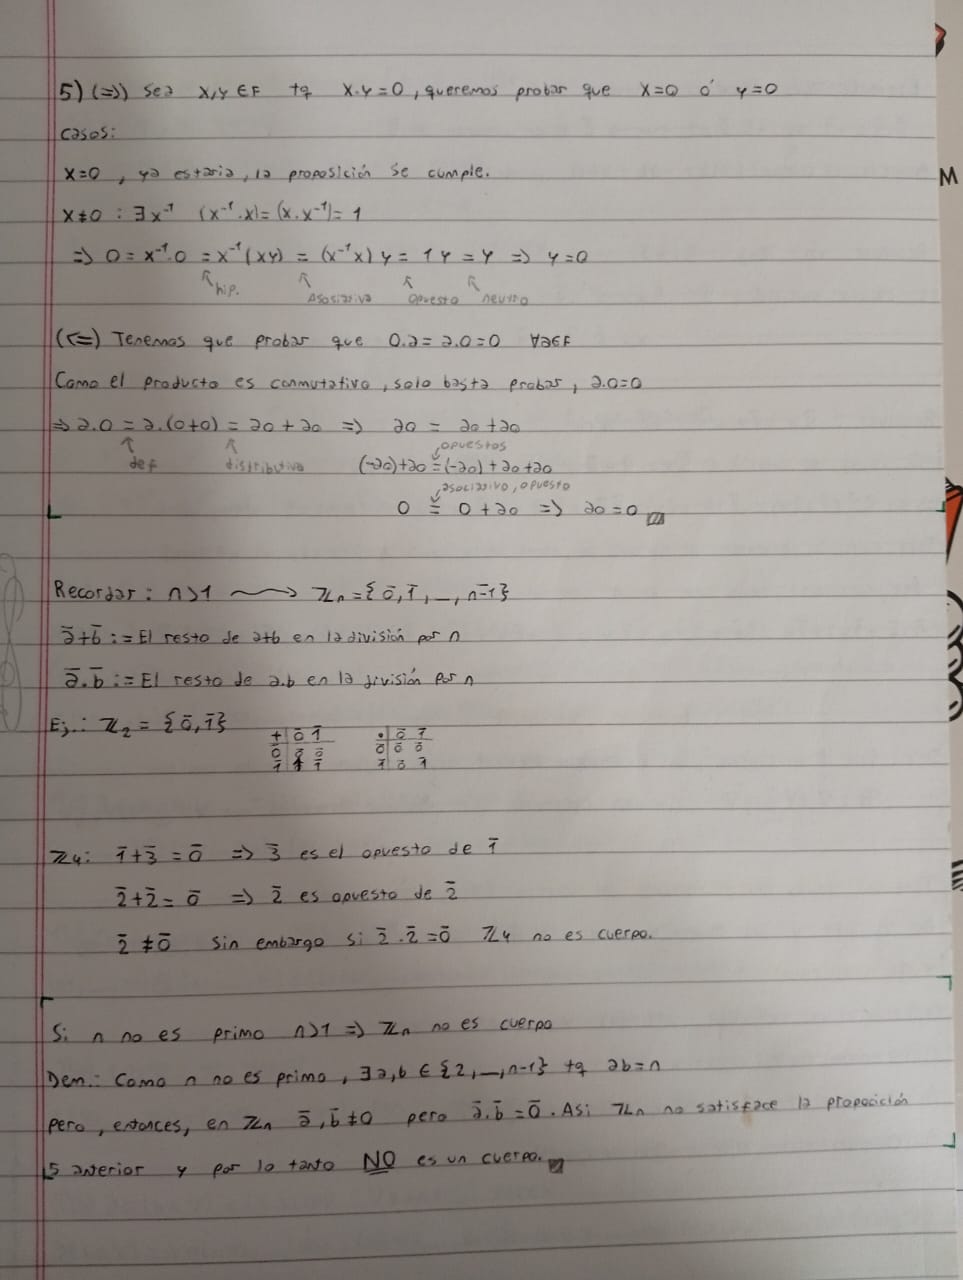 5) (=>) Sea x,y ∈ F tq x.y=0, queremos probar que x=0 ó y=0
casos:
x=0, ya estaria, la proposición se cumple.
x≠0 : ∃x⁻¹ (x⁻¹.x)=(x.x⁻¹)=1
=> 0=x⁻¹.0 = x⁻¹(xy) = (x⁻¹x)y = 1y = y => y=0
hip. Asosiasiva opuesto neutro
(<=) Tenemos que probar que 0.a=a.0=0 ∀a∈F
Como el producto es conmutativo, solo basta probar, a.0=0
=> a.0 = a.(0+0) = a0+a0 => a0 = a0+a0
def distributiva opuestos
(-a0)+a0 = (-a0)+a0+a0
asociasivo, opuesto
0 = 0+a0 => a0=0
Recordar: n>1 ⟿ ℤn={0̄,1̄,_,n-1̄}
ā+b̄ := El resto de a+b en la división por n
ā.b̄ := El resto de a.b en la división por n
Ej.: ℤ₂ = {0̄,1̄}
+ 0̄ 1̄ . 0̄ 1̄
ℤ4: 1̄+3̄=0̄ => 3̄ es el opuesto de 1̄
2̄+2̄=0̄ => 2̄ es opuesto de 2̄
2̄≠0̄ sin embargo si 2̄.2̄=0̄ ℤ4 no es cuerpo.
Si n no es primo n>1 => ℤn no es cuerpo
Dem.: Como n no es primo, ∃a,b ∈ {2,_,n-1} tq ab=n
pero, entonces, en ℤn ā,b̄≠0 pero ā.b̄=0̄. Asi ℤn no satisface la propocición
5 anterior y por lo tanto NO es un cuerpo.
M